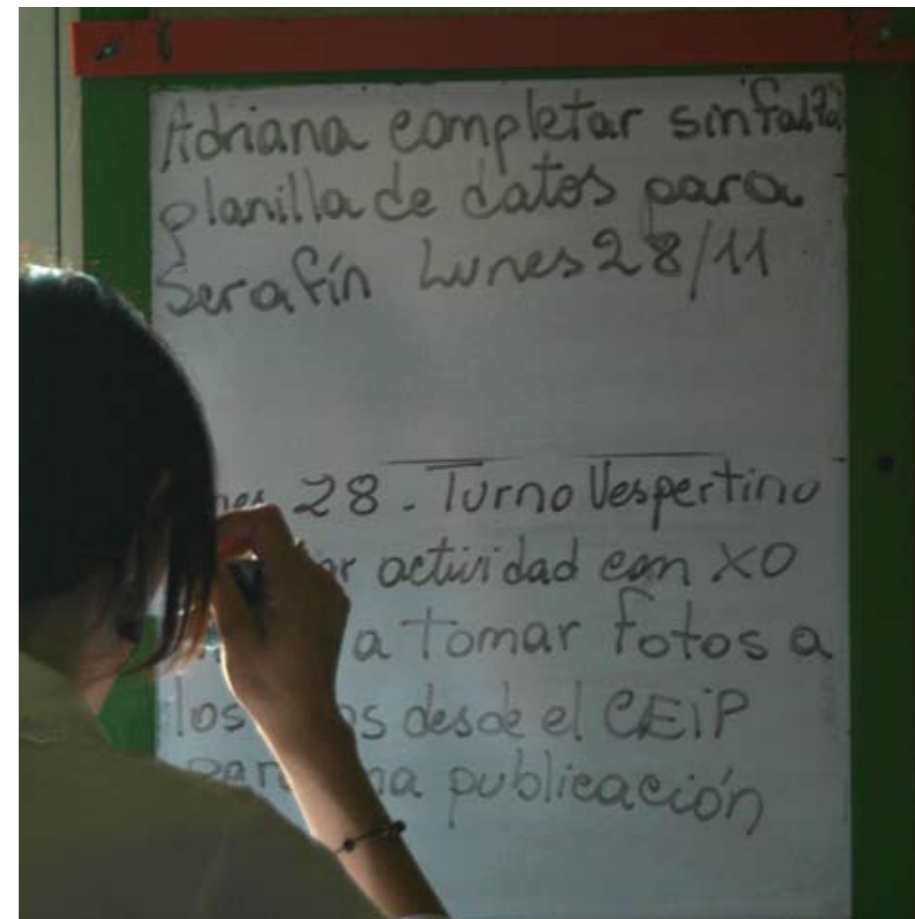 Adriana completar sin falta
planilla de datos para
Serafín Lunes 28/11
28 - Turno Vespertino
actividad con XO
a tomar fotos a
los desde el CEiP
publicación